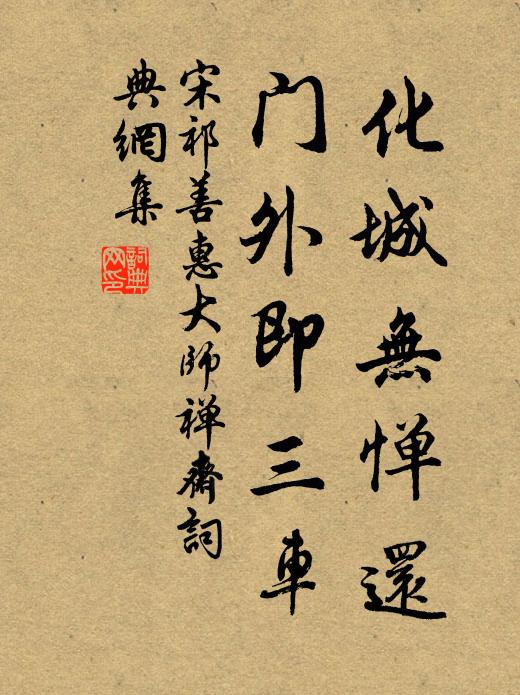 化城無惮還
門外即三車
宋祁善惠大師禅齋詞
典網集
詞典
网印